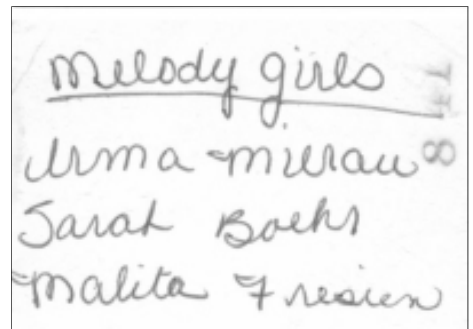 Melody girls
Irma Mierau
Sarah Boehr
Malita Friesien